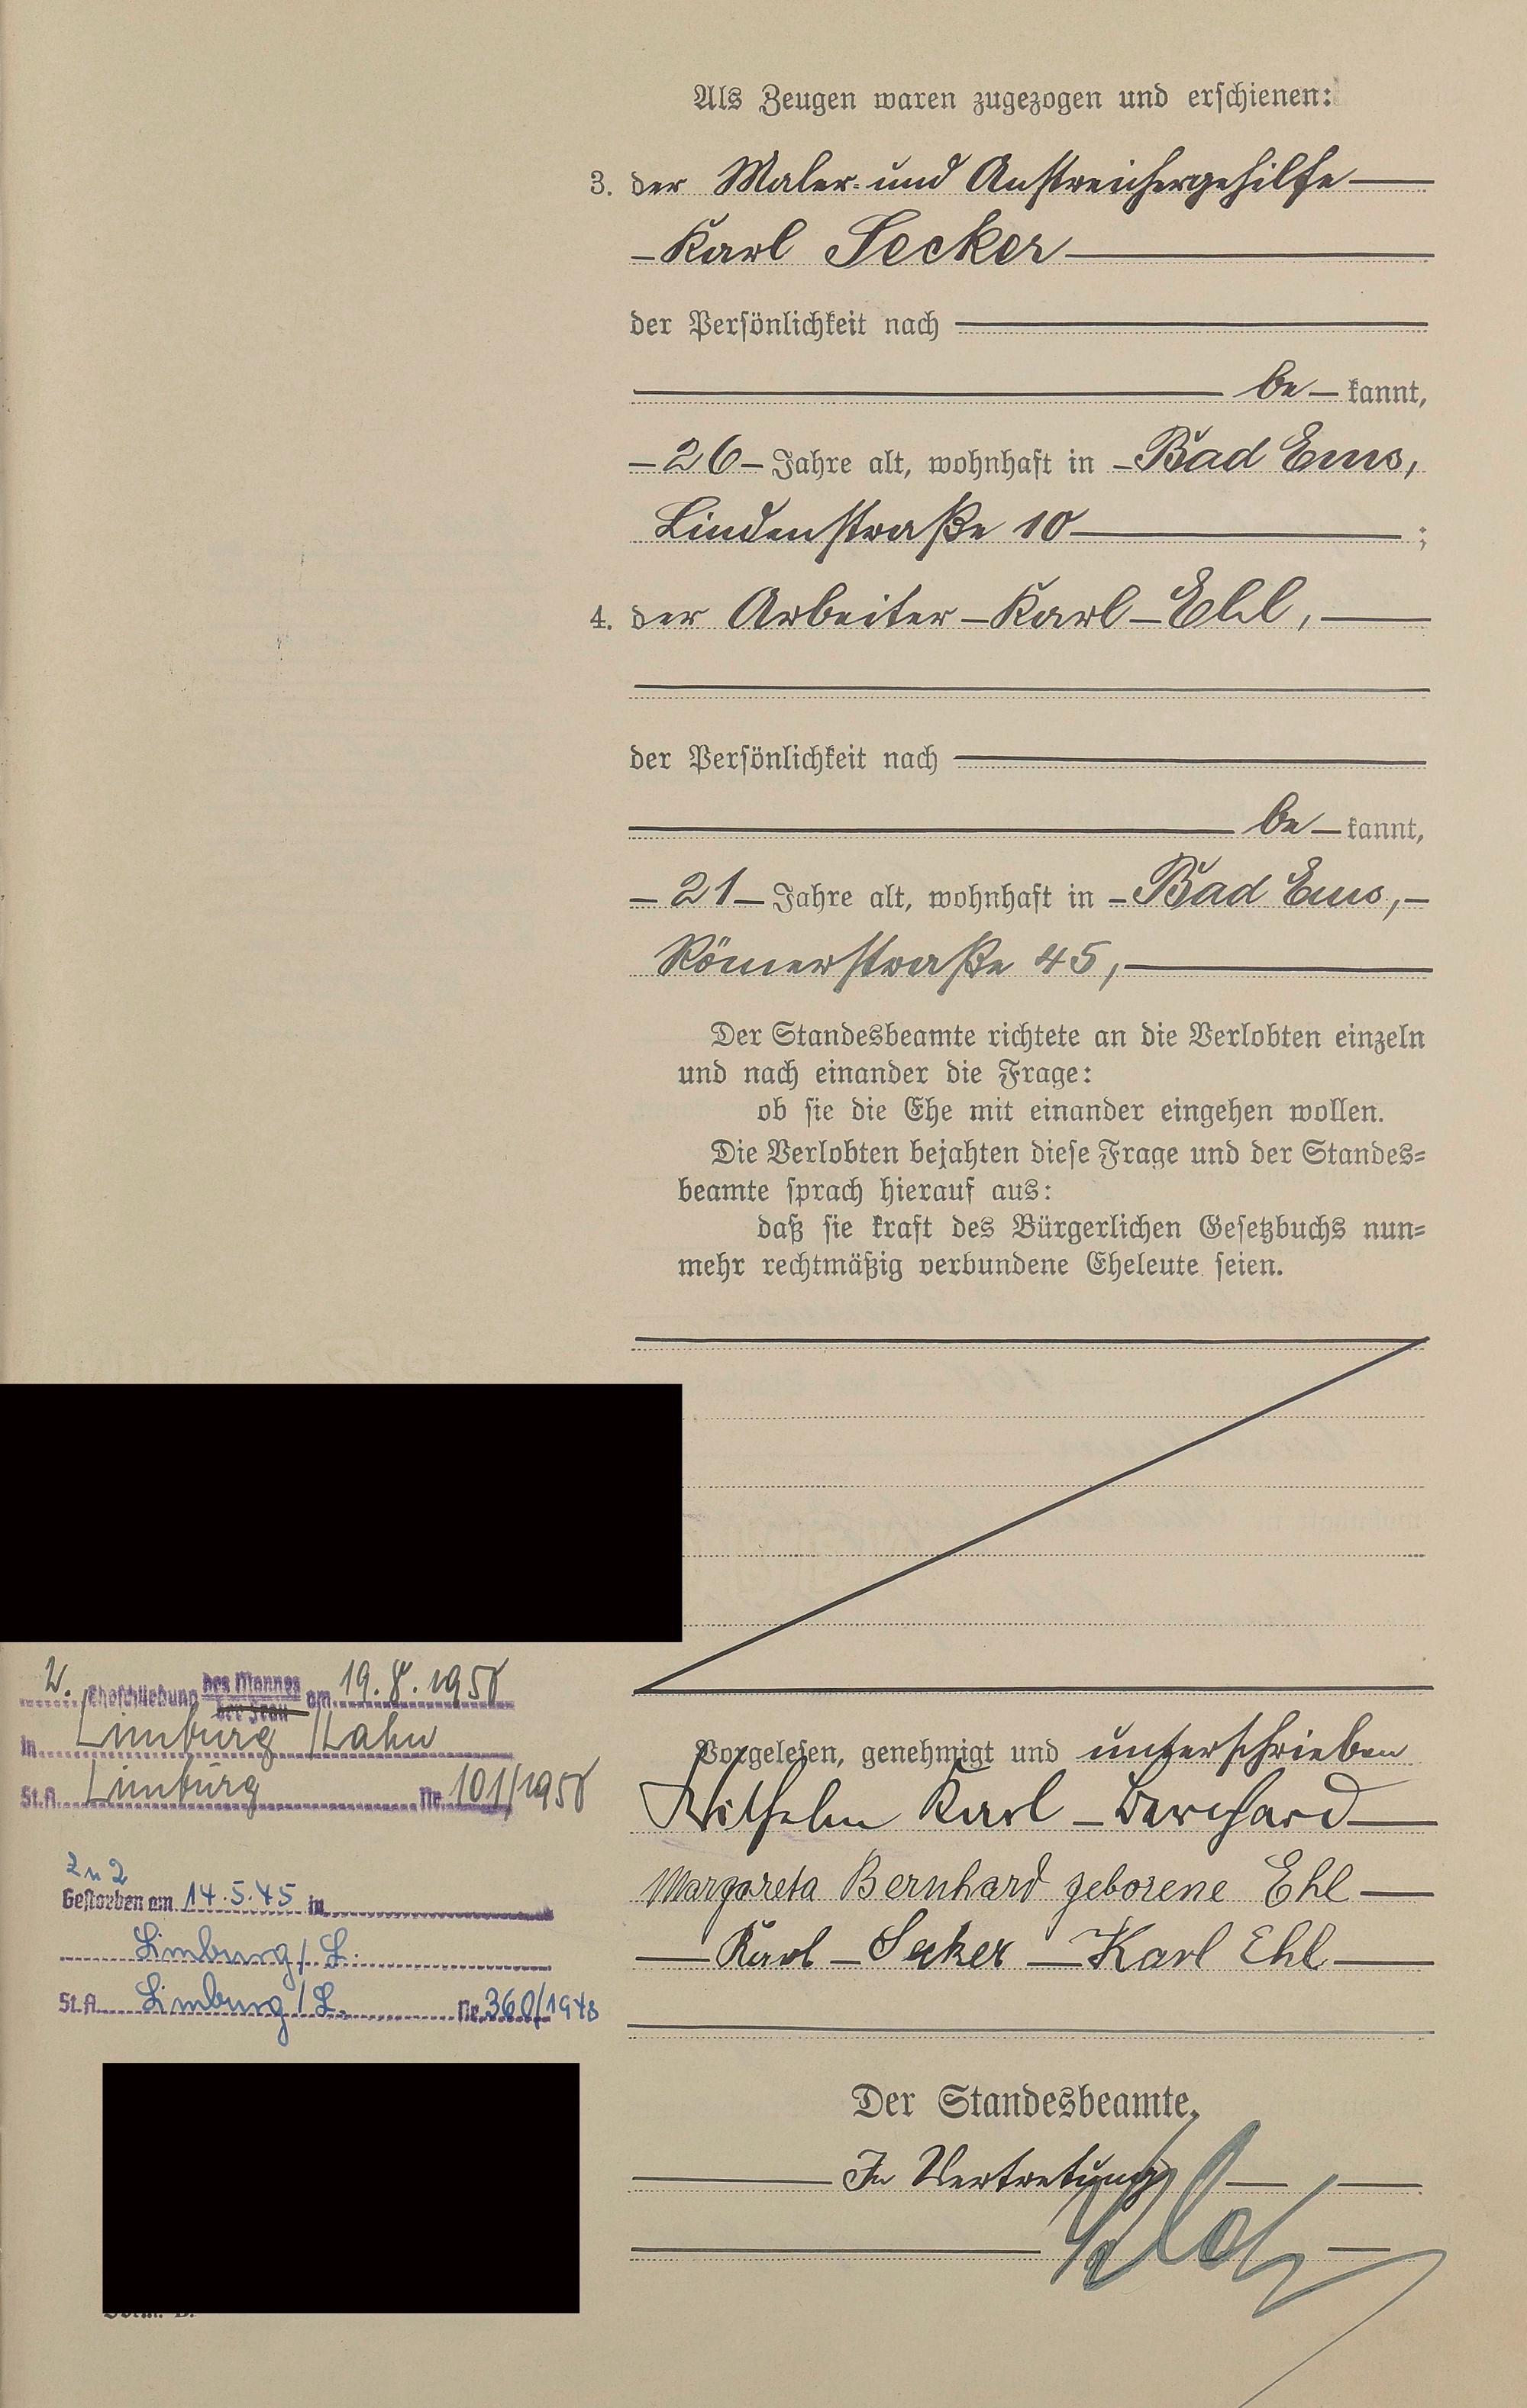 Als Zeugen waren zugezogen und erschienen:
3. der Maler- und Anstreichergehilfe
Karl Secker
der Persönlichkeit nach
be kannt,
26 Jahre alt, wohnhaft in Bad Ems,
Lindenstraße 10 ;
4. der Arbeiter Karl Ehl,
der Persönlichkeit nach
be kannt,
21 Jahre alt, wohnhaft in Bad Ems,
Römerstraße 45,
Der Standesbeamte richtete an die Verlobten einzeln
und nach einander die Frage:
ob sie die Ehe mit einander eingehen wollen.
Die Verlobten bejahten diese Frage und der Standes=
beamte sprach hierauf aus:
daß sie kraft des Bürgerlichen Gesetzbuchs nun=
mehr rechtmäßig verbundene Eheleute seien.
Vorgelesen, genehmigt und unterschrieben
Wilhelm Karl Bernhard
Margareta Bernhard geborene Ehl
Karl Secker Karl Ehl
Der Standesbeamte.
In Vertretung
2. Eheschließung des Mannes der Frau am
in Limburg/Lahn
St.A. Limburg Nr.
Zu 2
Gestorben am 14.5.45 in
Limburg/L.
St.A. Limburg/L. Nr. 360/1948